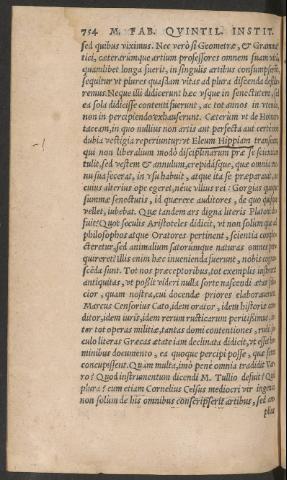 754 M. FAB. QUINTIL. INSTIT.
sed quibus viximus. Nec verò si Geometræ, & Gramma
tici, cæterarumque artium professores omnem suam vitam,
quamlibet longa fuerit, in singulis artibus consumpserint,
sequitur vt plures quasdam vitas ad plura discenda deside
remus. Neque illi didicerunt hæc vsque in senectutem, sed
ea sola didicisse contenti fuerunt, ac tot annos in vtendo,
non in percipiendo exhauserunt. Cæterum vt de Homero
taceam, in quo nullius non artis aut perfecta aut certè non
dubia vestigia reperiuntur: vt Eleum Hippiam
qui non liberalium modò disciplinarum præ se scientiam
tulit, sed vestem & annulum, crepidásque, quæ omnia ma
nu sua fecerat, in vsu habuit, atque ita se præparauit, ne
cuius alterius ope egeret, néue vllius rei: Gorgias quoque
summæ senectutis, id quærere auditores, de quo quisque
vellet, iubebat. Quæ tandem ars digna literis Platoni de
fuit? Quot seculis Aristoteles didicit, vt non solùm quæ ad
philosophos atque Oratores pertinent, scientia comple
cteretur, sed animalium satorumque naturas omnes per
quireret? illis enim hæc inuenienda fuerunt, nobis cogno
scēda sunt. Tot nos præceptoribus, tot exemplis instruxit
antiquitas, vt possit videri nulla sorte nascendi ætas feli
cior, quàm nostra, cui docendæ priores elaborarunt.
Marcus Censorius Cato, idem orator, idem historiæ con
ditor, idem iuris, idem rerum rusticarum peritissimus, in
ter tot operas militiæ, tantas domi contentiones, rudi se
culo literas Græcas ætate iam declinata didicit, vt esset ho
minibus documento, ea quoque percipi posse, quæ senes
concupissent. Quàm multa, imò penè omnia tradidit Var
ro? Quod instrumentum dicendi M. Tullio defuit? Quid
plura? cum etiam Cornelius Celsus mediocri vir ingenio,
non solùm de his omnibus conscripserit artibus, sed am
plius